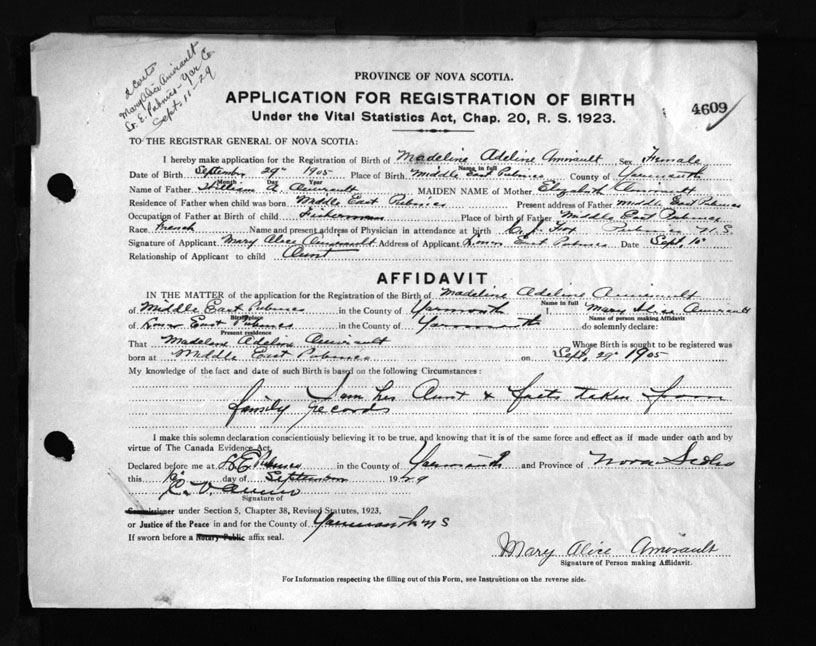 Mary Alice Amirault
Sept. 11-29
PROVINCE OF NOVA SCOTIA.
APPLICATION FOR REGISTRATION OF BIRTH
4609
Under the Vital Statistics Act, Chap. 20, R. S. 1923.
TO THE REGISTRAR GENERAL OF NOVA SCOTIA:
I hereby make application for the Registration of Birth of Madeline Adeline Amirault Sex Female
Name in full
Date of Birth September 29th 1905 Place of Birth Middle East Pubnico County of Yarmouth
Month Day Year
Name of Father William A. Amirault MAIDEN NAME of Mother Elizabeth Amirault
Residence of Father when child was born Middle East Pubnico Present address of Father Middle East Pubnico
Occupation of Father at Birth of child Fisherman Place of birth of Father Middle East Pubnico
Race French Name and present address of Physician in attendance at birth C. J. Fox Pubnico N.S.
Signature of Applicant Mary Alice Amirault Address of Applicant Lower East Pubnico Date Sept. 10
Relationship of Applicant to child Aunt
AFFIDAVIT
IN THE MATTER of the application for the Registration of the Birth of Madeline Adeline Amirault
Name in full
of Middle East Pubnico in the County of Yarmouth I, Mary Alice Amirault
Birthplace Name of person making Affidavit
of Lower East Pubnico in the County of Yarmouth do solemnly declare:
Present residence
That Madeline Adeline Amirault Whose Birth is sought to be registered was
born at Middle East Pubnico on Sept. 29th 1905
My knowledge of the fact and date of such Birth is based on the following Circumstances:
I am her Aunt & facts taken from
family records
I make this solemn declaration conscientiously believing it to be true, and knowing that it is of the same force and effect as if made under oath and by
virtue of The Canada Evidence Act.
Declared before me at L. E. Pubnico in the County of Yarmouth and Province of Nova Scotia
this day of September 1929
Signature of
Commissioner under Section 5, Chapter 38, Revised Statutes, 1923,
or Justice of the Peace in and for the County of Yarmouth N S
If sworn before a Notary Public affix seal.
Mary Alice Amirault
Signature of Person making Affidavit.
For Information respecting the filling out of this Form, see Instructions on the reverse side.